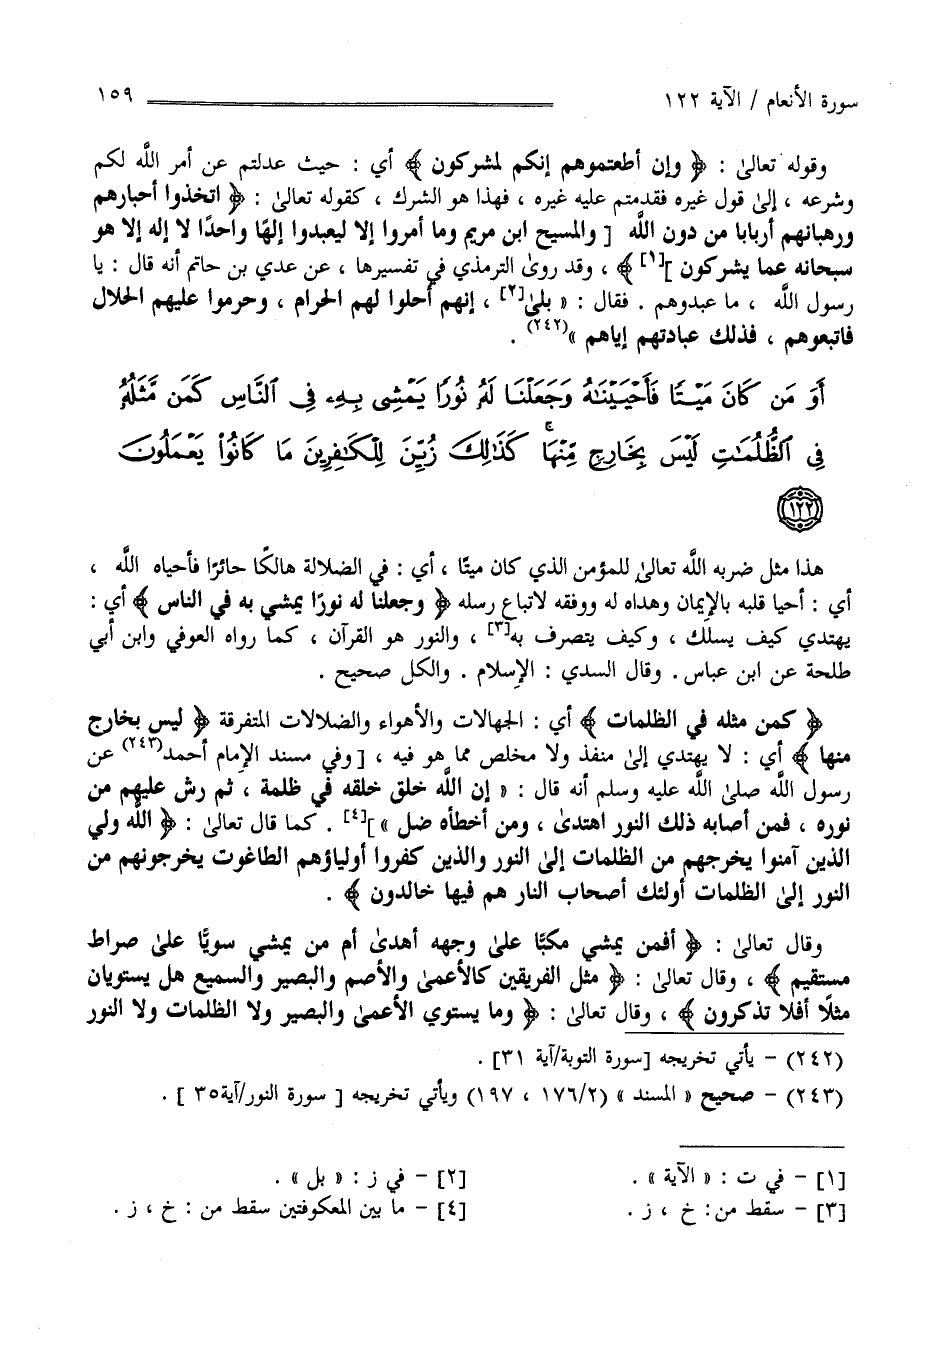 سورة الأنعام / الآية ١٢٢ ١٥٩
وقوله تعالىٰ : ﴿ وإن أطعتموهم إنكم لمشركون ﴾ أي : حيث عدلتم عن أمر اللَّه لكم
وشرعه ، إلىٰ قول غيره فقدمتم عليه غيره ، فهذا هو الشرك ، كقوله تعالىٰ : ﴿ اتخذوا أحبارهم
ورهبانهم أربابا من دون اللَّه [ والمسيح ابن مريم وما أمروا إلا ليعبدوا إلهًا واحدًا لا إله إلا هو
سبحانه عما يشركون ][١] ﴾ ، وقد روىٰ الترمذي في تفسيرها ، عن عدي بن حاتم أنه قال : يا
رسول اللَّه ، ما عبدوهم . فقال : « بلىٰ[٢] ، إنهم أحلوا لهم الحرام ، وحرموا عليهم الحلال
فاتبعوهم ، فذلك عبادتهم إياهم »(٢٤٢) .
أَوَ مَن كَانَ مَيْتًا فَأَحْيَيْنَٰهُ وَجَعَلْنَا لَهُۥ نُورًا يَمْشِى بِهِۦ فِى ٱلنَّاسِ كَمَن مَّثَلُهُۥ
فِى ٱلظُّلُمَٰتِ لَيْسَ بِخَارِجٍ مِّنْهَا ۚ كَذَٰلِكَ زُيِّنَ لِلْكَٰفِرِينَ مَا كَانُوا۟ يَعْمَلُونَ
١٢٢
هذا مثل ضربه اللَّه تعالىٰ للمؤمن الذي كان ميتًا ، أي : في الضلالة هالكًا حائرًا فأحياه اللَّه ،
أي : أحيا قلبه بالإِيمان وهداه له ووفقه لاتباع رسله ﴿ وجعلنا له نورًا يمشي به في الناس ﴾ أي :
يهتدي كيف يسلك ، وكيف يتصرف به[٣] ، والنور هو القرآن ، كما رواه العوفي وابن أبي
طلحة عن ابن عباس . وقال السدي : الإِسلام . والكل صحيح .
﴿ كمن مثله في الظلمات ﴾ أي : الجهالات والأهواء والضلالات المتفرقة ﴿ ليس بخارج
منها ﴾ أي : لا يهتدي إلىٰ منفذ ولا مخلص مما هو فيه ، [ وفي مسند الإِمام أحمد(٢٤٣) عن
رسول اللَّه صلىٰ اللَّه عليه وسلم أنه قال : « إن اللَّه خلق خلقه في ظلمة ، ثم رش عليهم من
نوره ، فمن أصابه ذلك النور اهتدىٰ ، ومن أخطأه ضل » ][٤] . كما قال تعالىٰ : ﴿ اللَّه ولي
الذين آمنوا يخرجهم من الظلمات إلىٰ النور والذين كفروا أولياؤهم الطاغوت يخرجونهم من
النور إلىٰ الظلمات أولئك أصحاب النار هم فيها خالدون ﴾ .
وقال تعالىٰ : ﴿ أفمن يمشي مكبًّا علىٰ وجهه أهدىٰ أم من يمشي سويًّا علىٰ صراط
مستقيم ﴾ ، وقال تعالىٰ : ﴿ مثل الفريقين كالأعمىٰ والأصم والبصير والسميع هل يستويان
مثلًا أفلا تذكرون ﴾ ، وقال تعالىٰ : ﴿ وما يستوي الأعمىٰ والبصير ولا الظلمات ولا النور
(٢٤٢) - يأتي تخريجه [سورة التوبة/آية ٣١] .
(٢٤٣) - صحيح « المسند » (١٧٦/٢ ، ١٩٧) ويأتي تخريجه [ سورة النور/آية٣٥ ] .
[١] - في ت : « الآية » . [٢] - في ز : « بل » .
[٣] - سقط من : خ ، ز . [٤] - ما بين المعكوفتين سقط من : خ ، ز .